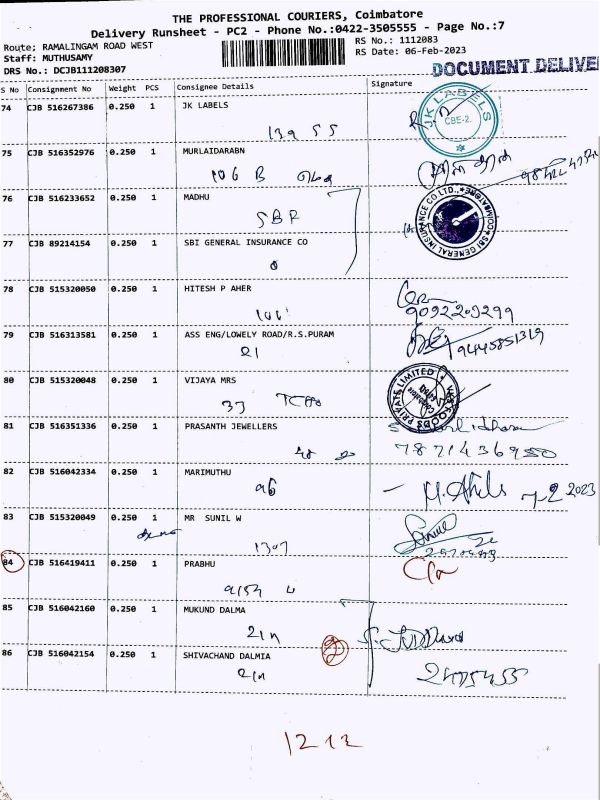 THE PROFESSIONAL COURIERS, Coimbatore
Delivery Runsheet - PC2 - Phone No.:0422-3505555 - Page No.:7
Route; RAMALINGAM ROAD WEST
RS No.: 1112083
Staff: MUTHUSAMY
RS Date: 06-Feb-2023
DRS No.: DCJB111208307
DOCUMENT DELIVE
S No Consignment No Weight PCS Consignee Details Signature
74 CJB 516267386 0.250 1 JK LABELS
JK LABELS CBE-2.
139 SS
75 CJB 516352976 0.250 1 MURLAIDARABN
106 B
76 CJB 516233652 0.250 1 MADHU
SBR
SBI GENERAL INSURANCE CO LTD., COIMBATORE
77 CJB 89214154 0.250 1 SBI GENERAL INSURANCE CO
78 CJB 515320050 0.250 1 HITESH P AHER
9092203299
79 CJB 516313581 0.250 1 ASS ENG/LOWELY ROAD/R.S.PURAM
21
9445851319
80 CJB 515320048 0.250 1 VIJAYA MRS
37
FOODS PRIVATE LIMITED
81 CJB 516351336 0.250 1 PRASANTH JEWELLERS
7871436950
82 CJB 516042334 0.250 1 MARIMUTHU
96
7-2 2023
83 CJB 515320049 0.250 1 MR SUNIL W
1307
84 CJB 516419411 0.250 1 PRABHU
85 CJB 516042160 0.250 1 MUKUND DALMA
21n
86 CJB 516042154 0.250 1 SHIVACHAND DALMIA
21n
2405455
1212